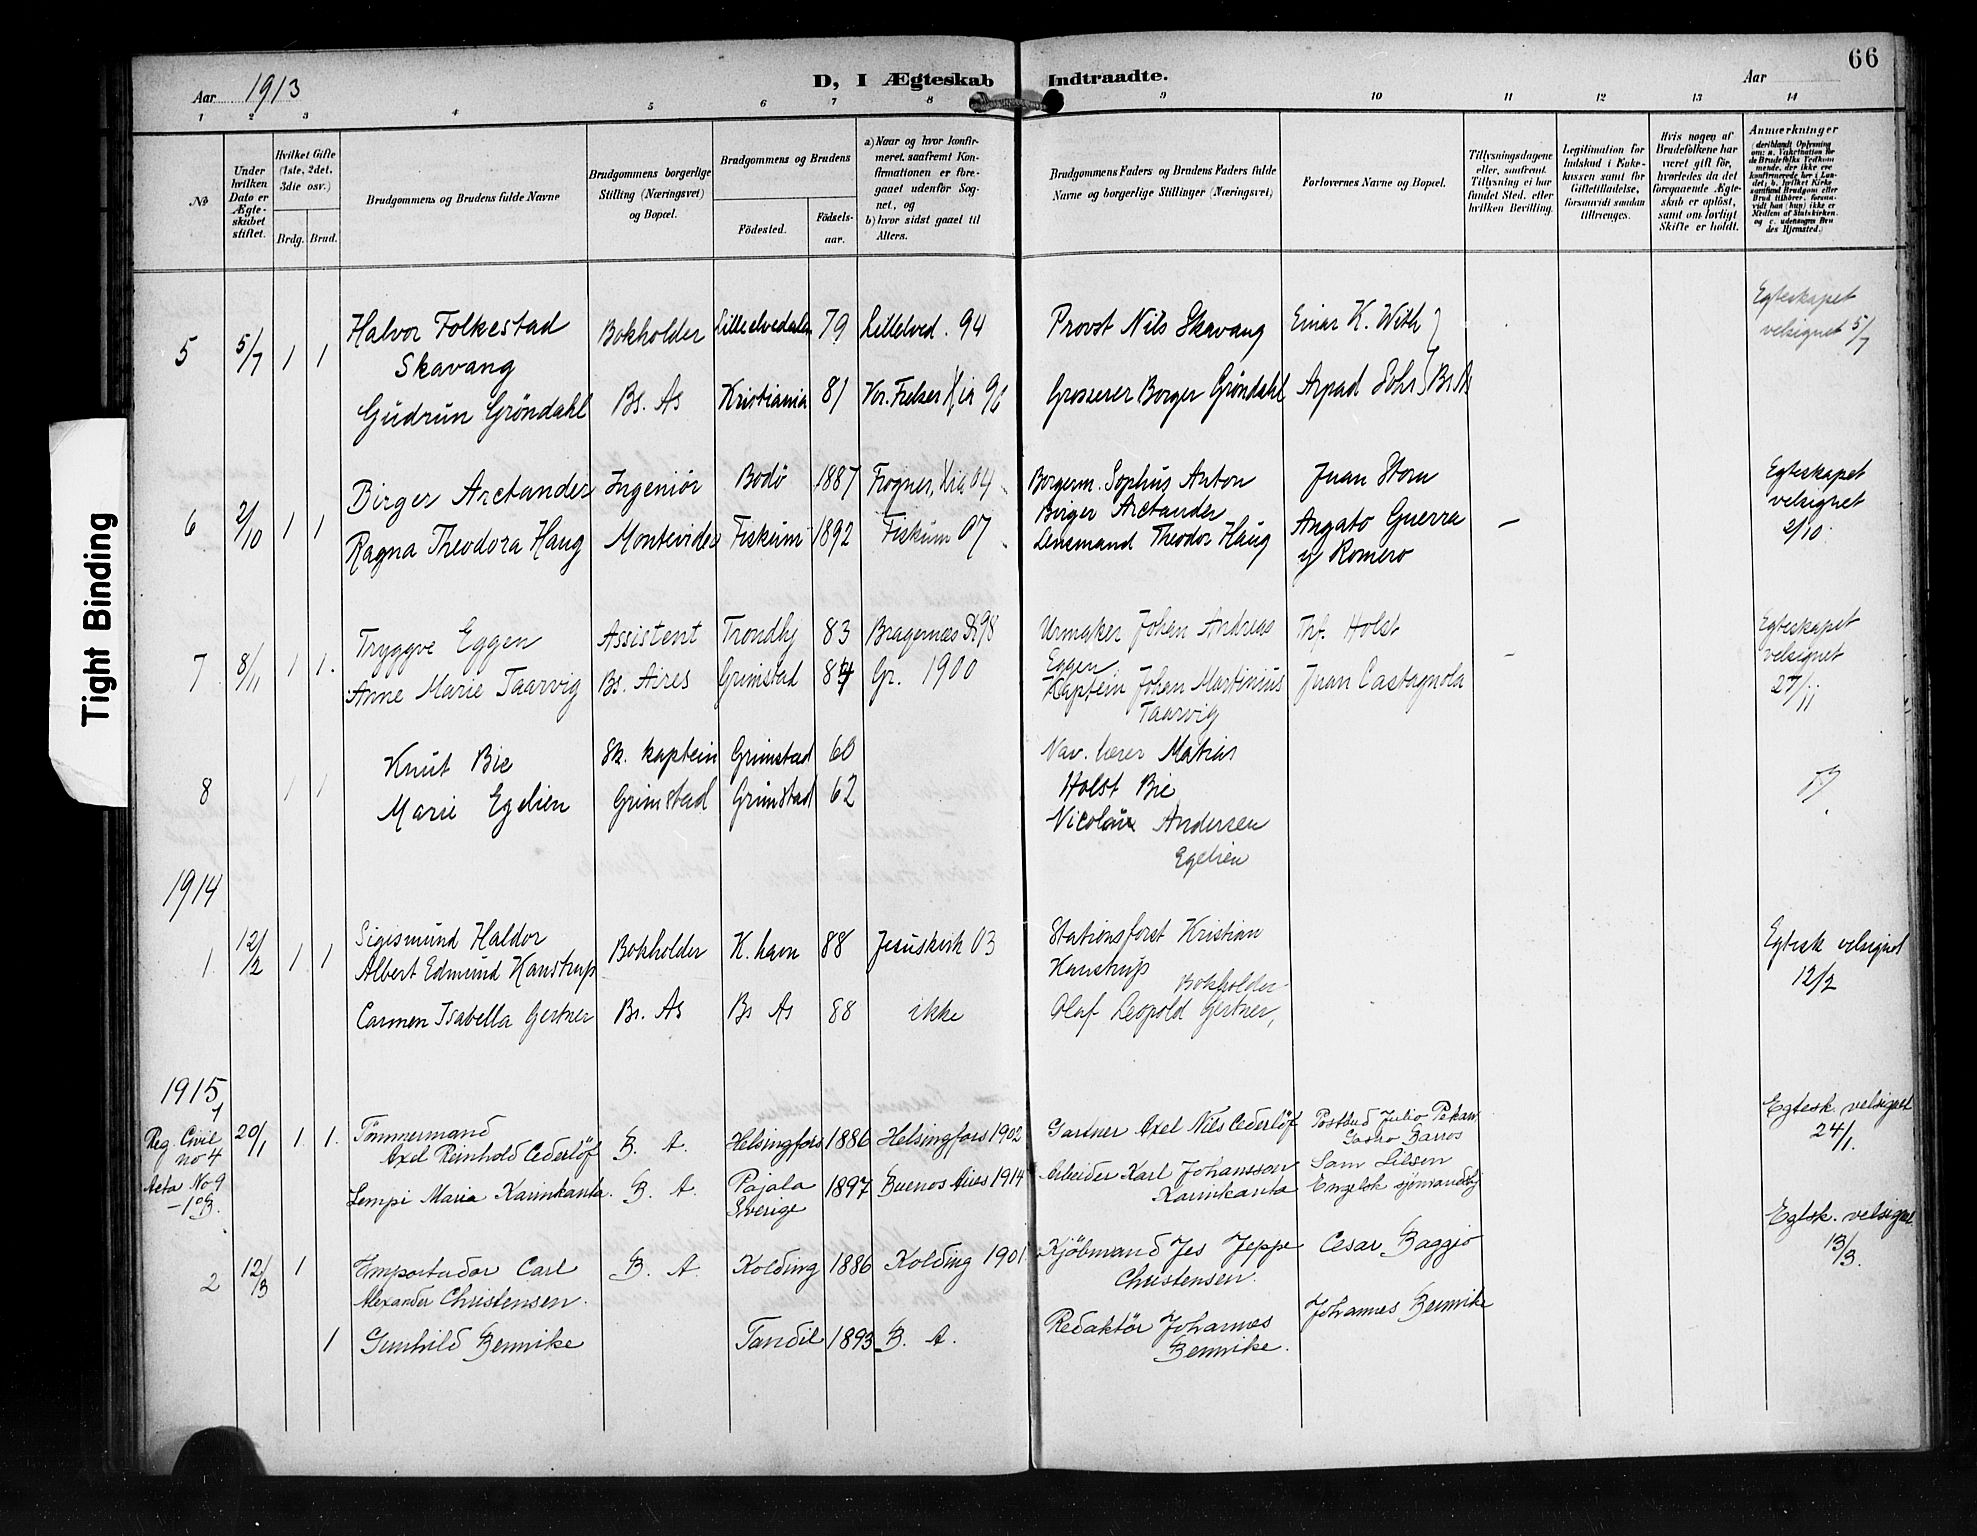 66
Aar 1913
D, I Ægteskab Indtraadte.
Aar
1 2 3 4 5 6 7 8 9 10 11 12 13 14
No
Under hvilken Dato er Ægteskabet stiftet.
Hvilket Gifte (1ste, 2det, 3die osv.)
Brdg. Brud.
Brudgommens og Brudens fulde Navne
Brudgommens borgerlige Stilling (Næringsvei) og Bopæl.
Brudgommens og Brudens
Födested.
Födselsaar.
a) Naar og hvor konfirmeret, saafremt Konfirmationen er foregaaet udenfor Sognet, og
b) hvor sidst gaaet til Alters.
Brudgommens Faders og Brudens Faders fulde Navne og borgerlige Stillinger (Næringsvei)
Forlovernes Navne og Bopæl.
Tillysningsdagene eller, saafremt Tillysning ei har fundet Sted, efter hvilken Bevilling.
Legitimation for Indskud i Enkekassen samt for Giftetilladelse, forsaavidt saadan tiltrænges.
Hvis nogen af Brudefolkene har været gift før, hvorledes da det foregaaende Ægteskab er opløst, samt om lovligt Skifte er holdt.
Anmærkninger
Tight Binding
5 5/7 1 1 Halvor Folkestad Bokholder Lilleelvedalen 79 Lillelved. 94 Provst Nils Skavang Einar K. With Egteskapet
Skavang velsignet 5/7
Gudrun Gröndahl Bs. As Kristiania 81 Vor. Frelser Kia 96 Grosserer Borger Gröndahl Arpad Bs As
6 2/10 1 1 Birger Arctander Ingeniör Bodö 1887 Frogner, Kia 04 Borgerm. Sophus Anton Juan Storm Egteskapet
Birger Arctander velsignet
Ragna Theodora Haug Montevideo Fiskum 1892 Fiskum 07 Lensmand Theodor Haug Angato Guerra — 2/10.
y Romero
7 8/11 1 1. Tryggve Eggen Assistent Trondhj 83 Bragernes 98 Urmaker Johan Andreas Holst Egteskapet
Eggen — velsignet
Anne Marie Taarvig Bs. Aires Grimstad 84 Gr. 1900 Kaptein Johan Martinius Juan Castagnola 27/11
Taarvig
8 1 1 Knut Bie Sk. kaptein Grimstad 60 Nav. lærer Matias
Holst Bie
Marie Egelien Grimstad Grimstad 62 Andersen
Egelien
1914
1. 12/2 1 1 Sigismund Haldor Bokholder K. havn 88 Jesuskirk 03 Stationsforst Kristian Egtesk velsignet
Albert Edmund Hanstrup Hanstrup 12/2
Bokholder
Carmen Isabella Gertner Bs. As Bs As 88 ikke Olaf Leopold Gertner,
1915
1
Reg. Civil 20/1 1. 1. Tömmermand B. A. Helsingfors 1886 Helsingfors 1902 Gartner Axel Nils Cederlöf Julio Egtesk. velsignet
no 4 Axel Reinhold Cederlöf Castro Barros 24/1.
Acta No 9 Lempi Maria Karinkanta. B. A. Pajala 1897 Buenos Aires 1914 Arbeider Karl Johansson Sam
Sverige Karinkanta Engelsk
2 12/3 1 Importador Carl B. A. Kolding 1886 Kolding 1901. Kjöbmand Jes Jeppe Cesar Baggio Egtsk. velsignet
Alexander Christensen. Christensen. 13/3.
1 Gunhild Bennike Tandil 1893 B. A. Redaktör Johannes Johannes Bennike
Bennike.